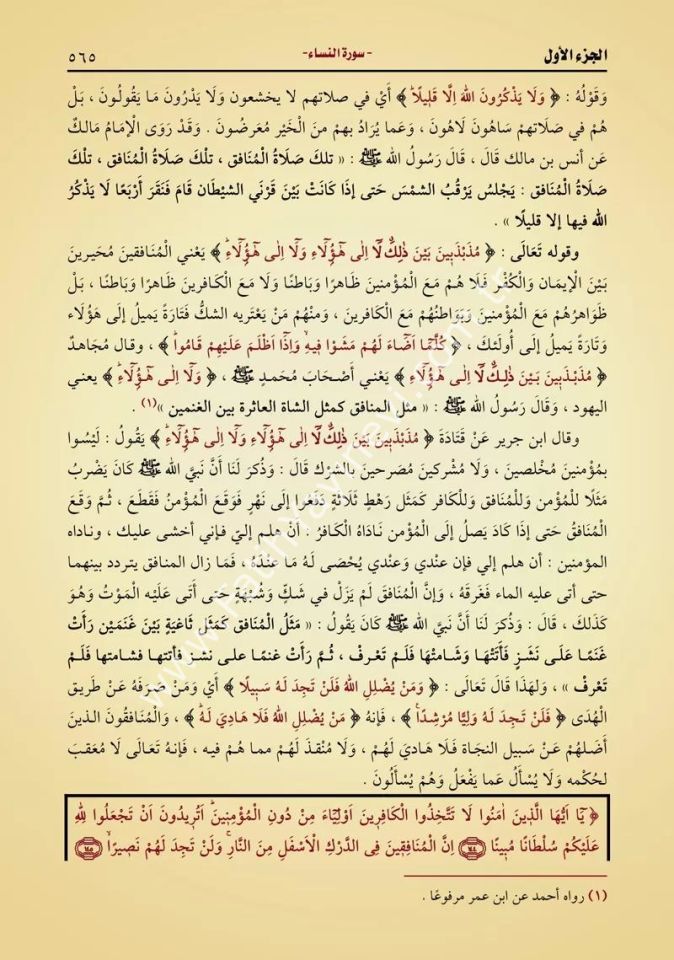 الجزء الأول
- سورة النساء -
٥٦٥
وَقَوْلُهُ : ﴿ وَلَا يَذْكُرُونَ اللّٰهَ اِلَّا قَلِيلًا ﴾ أَيْ في صلاتهم لا يخشعون وَلَا يَدْرُونَ مَا يَقُولُونَ ، بَلْ
هُمْ في صَلَاتهمْ سَاهُونَ لَاهُونَ ، وَعَما يُرَادُ بهمْ منَ الْخَيْر مُعَرضُونَ . وَقَدْ رَوَى الْإمَامُ مَالكٌ
عَن أنس بن مالك قَالَ ، قَالَ رَسُولُ الله ﷺ : « تلكَ صَلَاةُ الْمُنَافق ، تلْكَ صَلَاةُ الْمُنَافق ، تلْكَ
صَلَاةُ الْمُنَافق : يَجْلسُ يَرْقُبُ الشمْسَ حَتى إذَا كَانَتْ بَيْنَ قَرْنَي الشيْطَان قَامَ فَنَقَرَ أَرْبَعًا لَا يَذْكُرُ
الله فيها إلا قليلًا » .
وقوله تَعَالَى : ﴿ مُذَبْذَبِينَ بَيْنَ ذٰلِكَ لَا اِلٰى هٰٓؤُلَاءِ وَلَا اِلٰى هٰٓؤُلَاءِ ﴾ يَعْني الْمُنَافقينَ مُحَيرينَ
بَيْنَ الْإيمَان وَالْكُفْر فَلَا هُمْ مَعَ الْمُؤْمنينَ ظَاهرًا وَبَاطنًا وَلَا مَعَ الْكَافرينَ ظَاهرًا وَبَاطنًا ، بَلْ
ظَوَاهرُهُمْ مَعَ الْمُؤْمنينَ وَبَوَاطنُهُمْ مَعَ الْكَافرينَ ، وَمنْهُمْ مَنْ يَعْتَريه الشكُّ فَتَارَةً يَميلُ إلَى هَؤُلَاء
وَتَارَةً يَميلُ إلَى أُولَئكَ ، ﴿ كُلَّمَٓا اَضَٓاءَ لَهُمْ مَشَوْا فِيهِ وَاِذَٓا اَظْلَمَ عَلَيْهِمْ قَامُوا ﴾ ، وقال مُجَاهدٌ
﴿ مُذَبْذَبِينَ بَيْنَ ذٰلِكَ لَا اِلٰى هٰٓؤُلَاءِ ﴾ يَعْني أَصْحَابَ مُحَمدٍ ﷺ ، ﴿ وَلَا اِلٰى هٰٓؤُلَاءِ ﴾ يعني
اليهود ، وَقَالَ رَسُولُ الله ﷺ : « مثل المنافق كمثل الشاة العائرة بين الغنمين »(١) .
وقال ابن جرير عَنْ قَتَادَةَ ﴿ مُذَبْذَبِينَ بَيْنَ ذٰلِكَ لَا اِلٰى هٰٓؤُلَاءِ وَلَا اِلٰى هٰٓؤُلَاءِ ﴾ يَقُولُ : لَيْسُوا
بمُؤْمنينَ مُخْلصينَ ، وَلَا مُشْركينَ مُصَرحينَ بالشرْك قَالَ : وَذُكرَ لَنَا أَنَّ نَبيَّ الله ﷺ كَانَ يَضْربُ
مَثَلًا للْمُؤْمن وَللْمُنَافق وَللْكَافر كَمَثَل رَهْطٍ ثَلَاثَةٍ دَفَعُوا إلَى نَهْرٍ فَوَقَعَ الْمُؤْمنُ فَقَطَعَ ، ثُمَّ وَقَعَ
الْمُنَافقُ حَتى إذَا كَادَ يَصلُ إلَى الْمُؤْمن نَادَاهُ الْكَافرُ : أن هلم إليّ فإني أخشى عليك ، وناداه
المؤمنين : أن هلم إلي فإن عنْدي وَعنْدي يُحْصَى لَهُ مَا عنْدَهُ ، فَمَا زال المنافق يتردد بينهما
حتى أتى عليه الماء فَغَرَقَهُ ، وَإنَّ الْمُنَافقَ لَمْ يَزَلْ في شَكٍّ وَشُبْهَةٍ حَتى أَتَى عَلَيْه الْمَوْتُ وَهُوَ
كَذَلكَ ، قَالَ : وَذُكرَ لَنَا أَنَّ نَبيَّ الله ﷺ كَانَ يَقُولُ : « مَثَلُ الْمُنَافق كَمَثَل ثَاغيَةٍ بَيْنَ غَنَمَيْن رَأَتْ
غَنَمًا عَلَى نَشَزٍ فَأَتَتْهَا وَشَامَتْهَا فَلَمْ تَعْرفْ ، ثُمَّ رَأَتْ غنمًا على نشز فأتتها فشامتها فَلَمْ
تَعْرفْ » ، وَلهَذَا قَالَ تَعَالَى : ﴿ وَمَنْ يُضْلِلِ اللّٰهُ فَلَنْ تَجِدَ لَهُ سَبِيلًا ﴾ أَيْ وَمَنْ صَرَفَهُ عَنْ طَريق
الْهُدَى ﴿ فَلَنْ تَجِدَ لَهُ وَلِيًّا مُرْشِدًا ﴾ ، فَإنهُ ﴿ مَنْ يُضْلِلِ اللّٰهُ فَلَا هَادِيَ لَهُ ﴾ ، وَالْمُنَافقُونَ الذينَ
أَضَلهُمْ عَنْ سَبيل النجَاة فَلَا هَاديَ لَهُمْ ، وَلَا مُنْقذَ لَهُمْ مما هم فيه ، فَإنهُ تَعَالَى لَا مُعَقبَ
لحُكْمه وَلَا يُسْأَلُ عَما يَفْعَلُ وَهُمْ يُسْأَلُونَ .
﴿ يَٓا اَيُّهَا الَّذِينَ اٰمَنُوا لَا تَتَّخِذُوا الْكَافِرِينَ اَوْلِيَٓاءَ مِنْ دُونِ الْمُؤْمِنِينَ اَتُرِيدُونَ اَنْ تَجْعَلُوا لِلّٰهِ
عَلَيْكُمْ سُلْطَانًا مُبِينًا ١٤٤ اِنَّ الْمُنَافِقِينَ فِي الدَّرْكِ الْاَسْفَلِ مِنَ النَّارِ وَلَنْ تَجِدَ لَهُمْ نَصِيرًا ١٤٥
(١) رواه أحمد عن ابن عمر مرفوعًا .